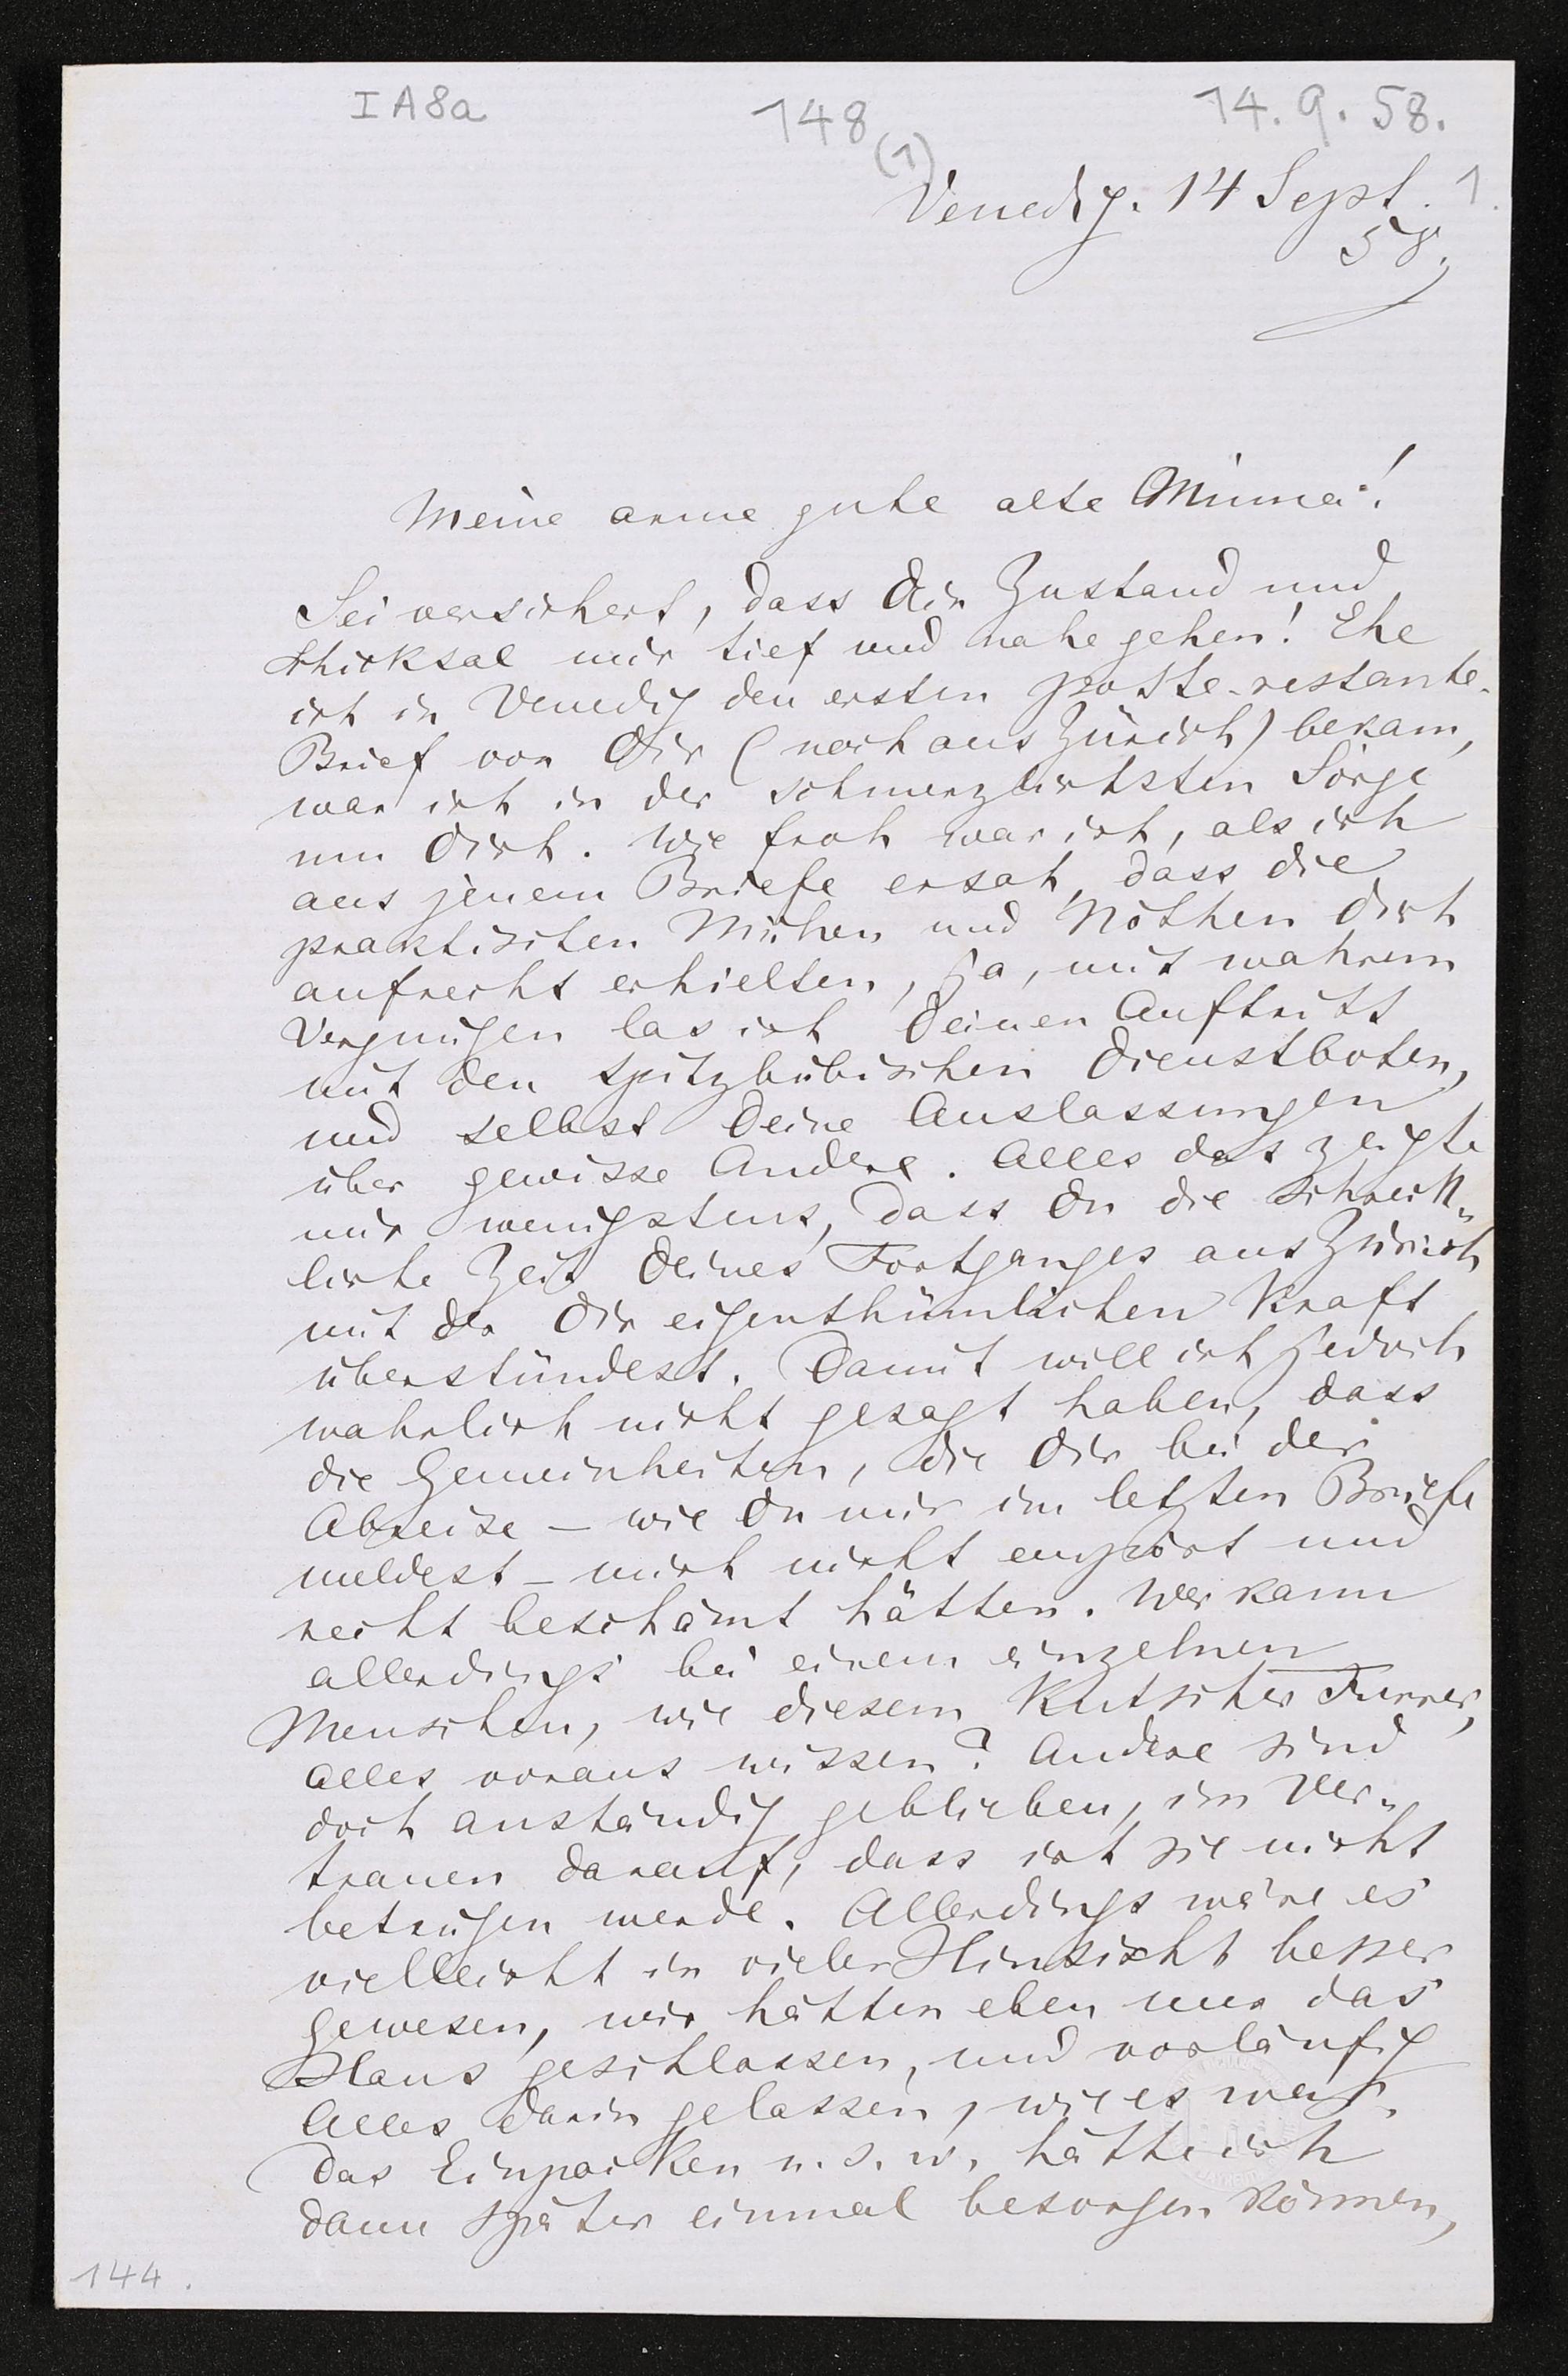 I A 8a
148
14. 9. 58.
(1)
1.
Venedig. 14 Sept.
58.
Meine arme gute alte Minna!
Sei versichert, dass Dein Zustand und
Schicksal mir tief und nahe gehen! Ehe
ich in Venedig den ersten poste-restante-
Brief von Dir (noch aus Zürich) bekam,
war ich in der schmerzlichsten Sorge
um Dich. Wie froh war ich, als ich
aus jenem Briefe ersah, dass die
praktischen Mühen und Nöthen Dich
aufrecht erhielten, ja, mit wahrem
Vergnügen las ich Deinen Auftritt
mit den spitzbübischen Dienstboten,
und selbst Deine Auslassungen
über gewisse Andere. Alles das zeigte
mir wenigstens, dass Du die schreck-
liche Zeit Deines Fortganges aus Zürich
mit der Dir eigenthümlichen Kraft
überstündest. Damit will ich jedoch
wahrlich nicht gesagt haben, dass
die Gemeinheiten, die Dir bei der
Abreise – wie Du mir im letzten Briefe
meldest – mich nicht empört und
recht beschämt hätten. Wer kann
allerdings bei einem einzelnen
Menschen, wie diesem Kutscher Furrer,
Alles voraus wissen? Andere sind
doch anständig geblieben, im Ver-
trauen darauf, dass ich sie nicht
betrügen werde. Allerdings wäre es
vielleicht in vieler Hinsicht besser
gewesen, wir hätten eben nur das
Haus geschlossen, und vorläufig
Alles darin gelassen, wie es war.
Das Einpacken u. s. w. hätte ich
dann später einmal besorgen können,
144.